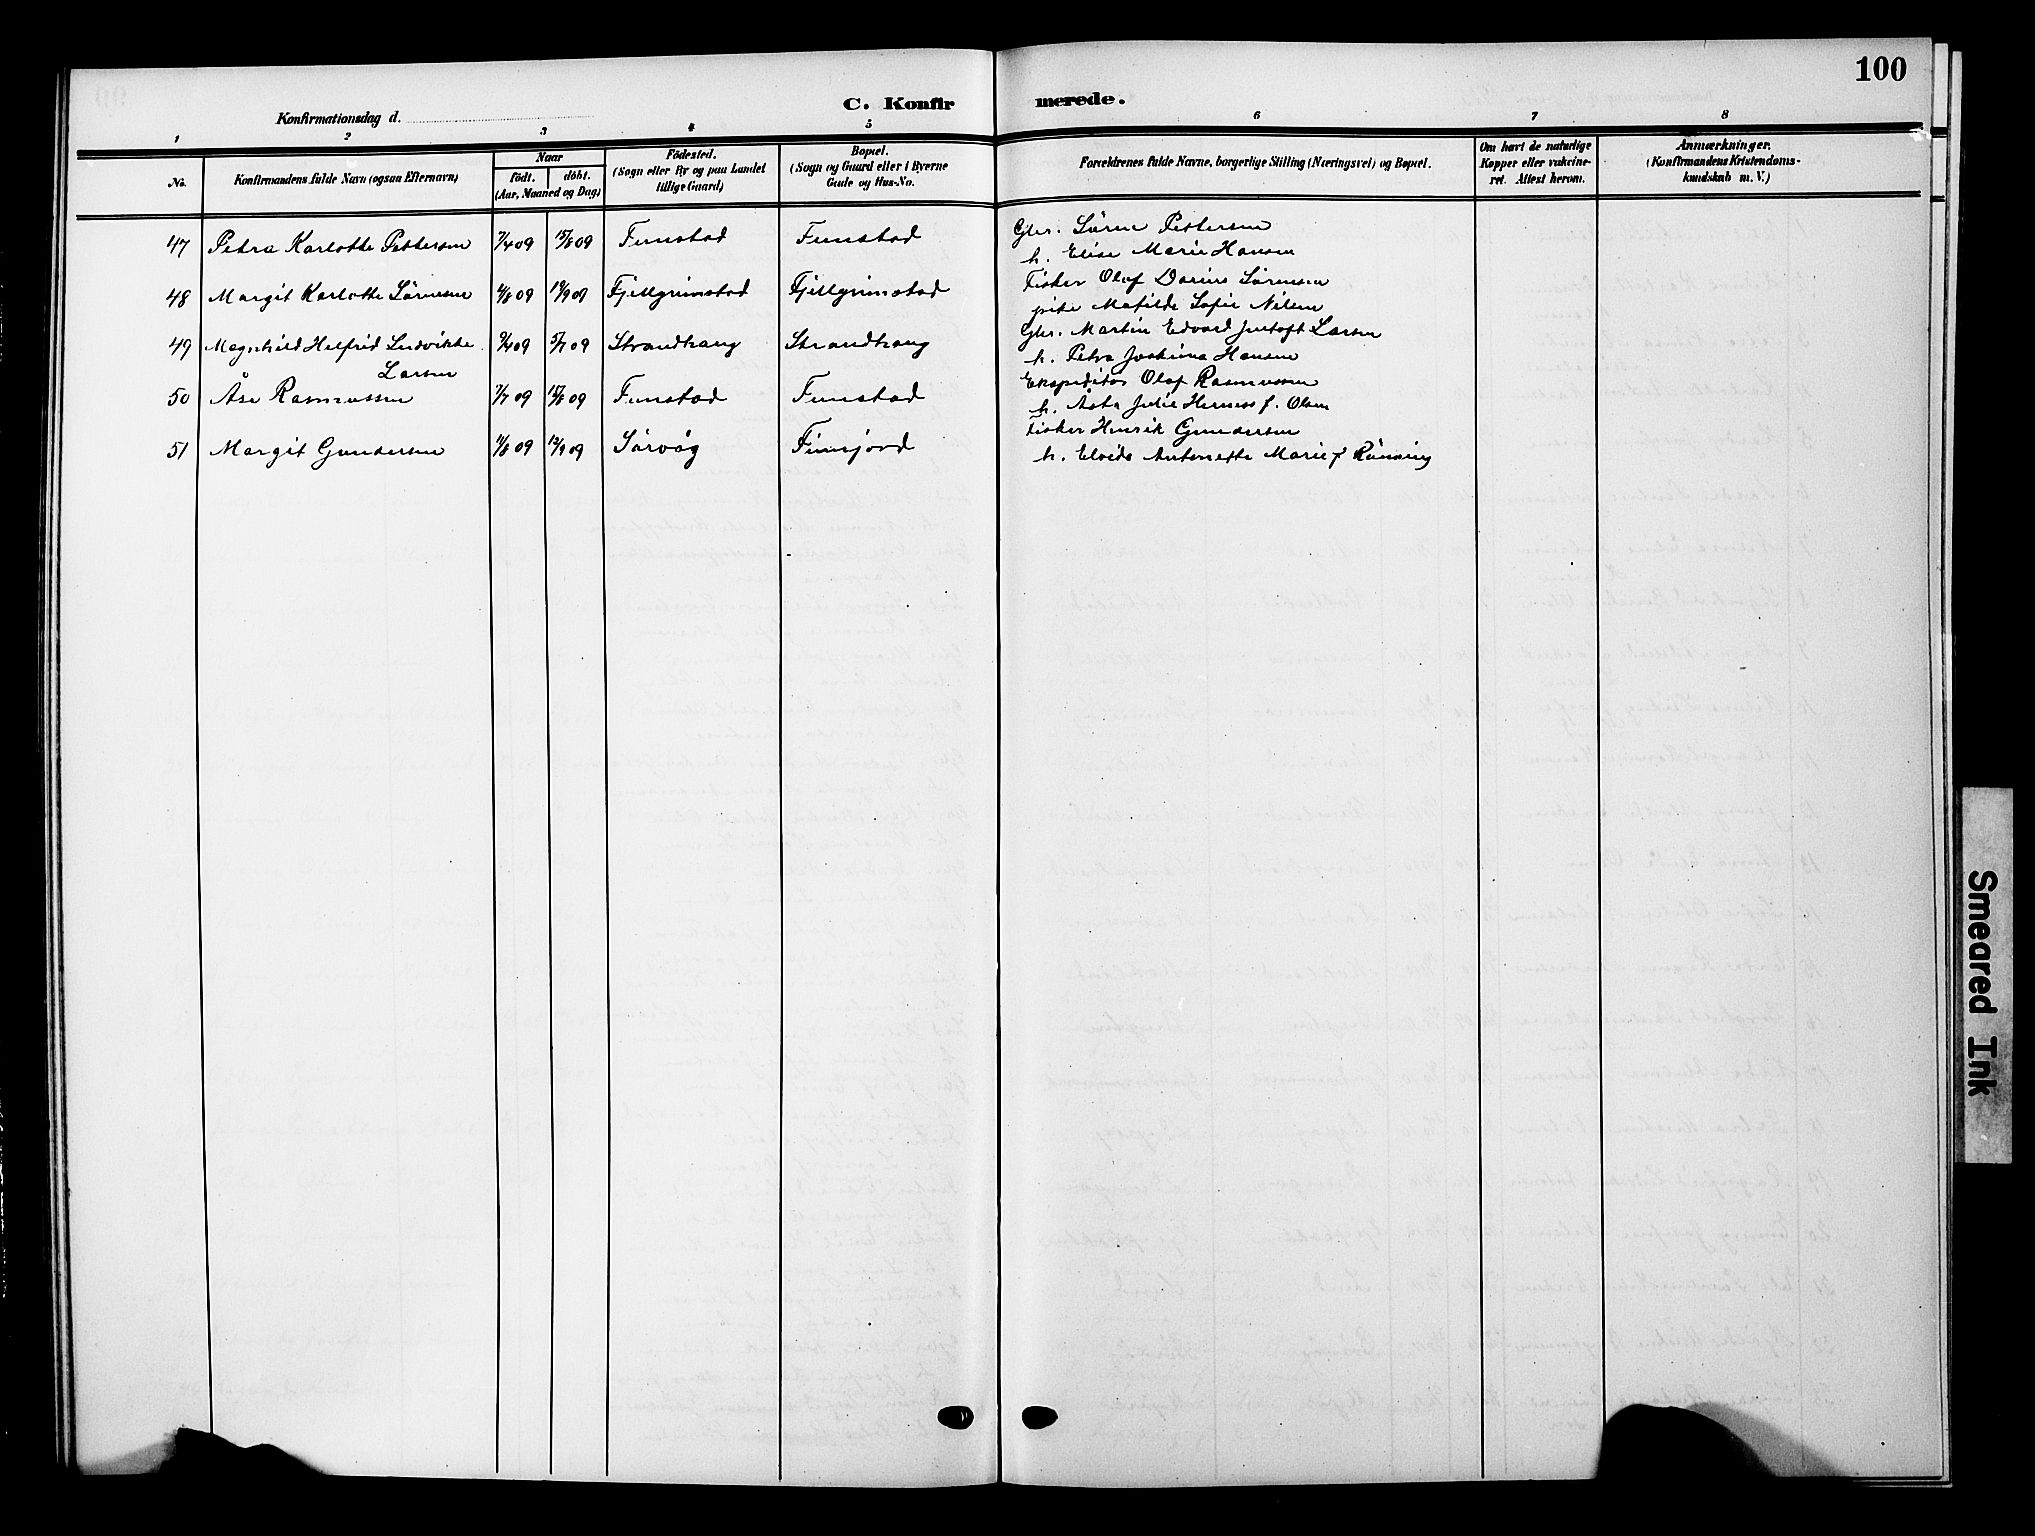 100
C. Konfirmerede.
Konfirmationsdag d.
1 2 3 4 5 6 7 8
No. Konfirmandens fulde Navn (ogsaa Efternavn) Naar födt. döbt. (Aar, Maaned og Dag) Födested. (Sogn eller By og paa Landet tillige Gaard) Bopæl. (Sogn og Gaard eller i Byerne Gade og Hus-No. Forældrenes fulde Navne, borgerlige Stilling (Næringsvei) og Bopæl. Om havt de naturlige Kopper eller vakcineret. Attest herom. Anmærkninger. (Konfirmandens Kristendomskundskab m. V.)
47 Petra Karlotte Pettersen 7/4 09 15/8 09 Finstad Finstad Gbr. Sören Pettersen
h. Elise Marie Hansen
48 Margit Karlotte Sörensen 4/8 09 19/9 09 Fjellgrimstad Fjellgrimstad Fisker Olaf Darius Sörensen
pike Matilde Sofie Nilsen
49 Magnhild Helfrid Ludvikke 9/4 09 5/7 09 Strandhaug Strandhaug Gbr. Martin Edvard Jentoft Larsen
Larsen h. Petra Joakima Hansen
50 Åse Rasmussen 7/7 09 15/8 09 Finstad Finstad Ekspeditör Olaf Rasmussen
h. Asta Julie Herness f. Olsen
51 Margit Gundersen 11/8 09 12/9 09 Sörvåg Finnjord Fisker Henrik Gundersen
h. Elvida Antonette Marie f Rönning
Smeared Ink